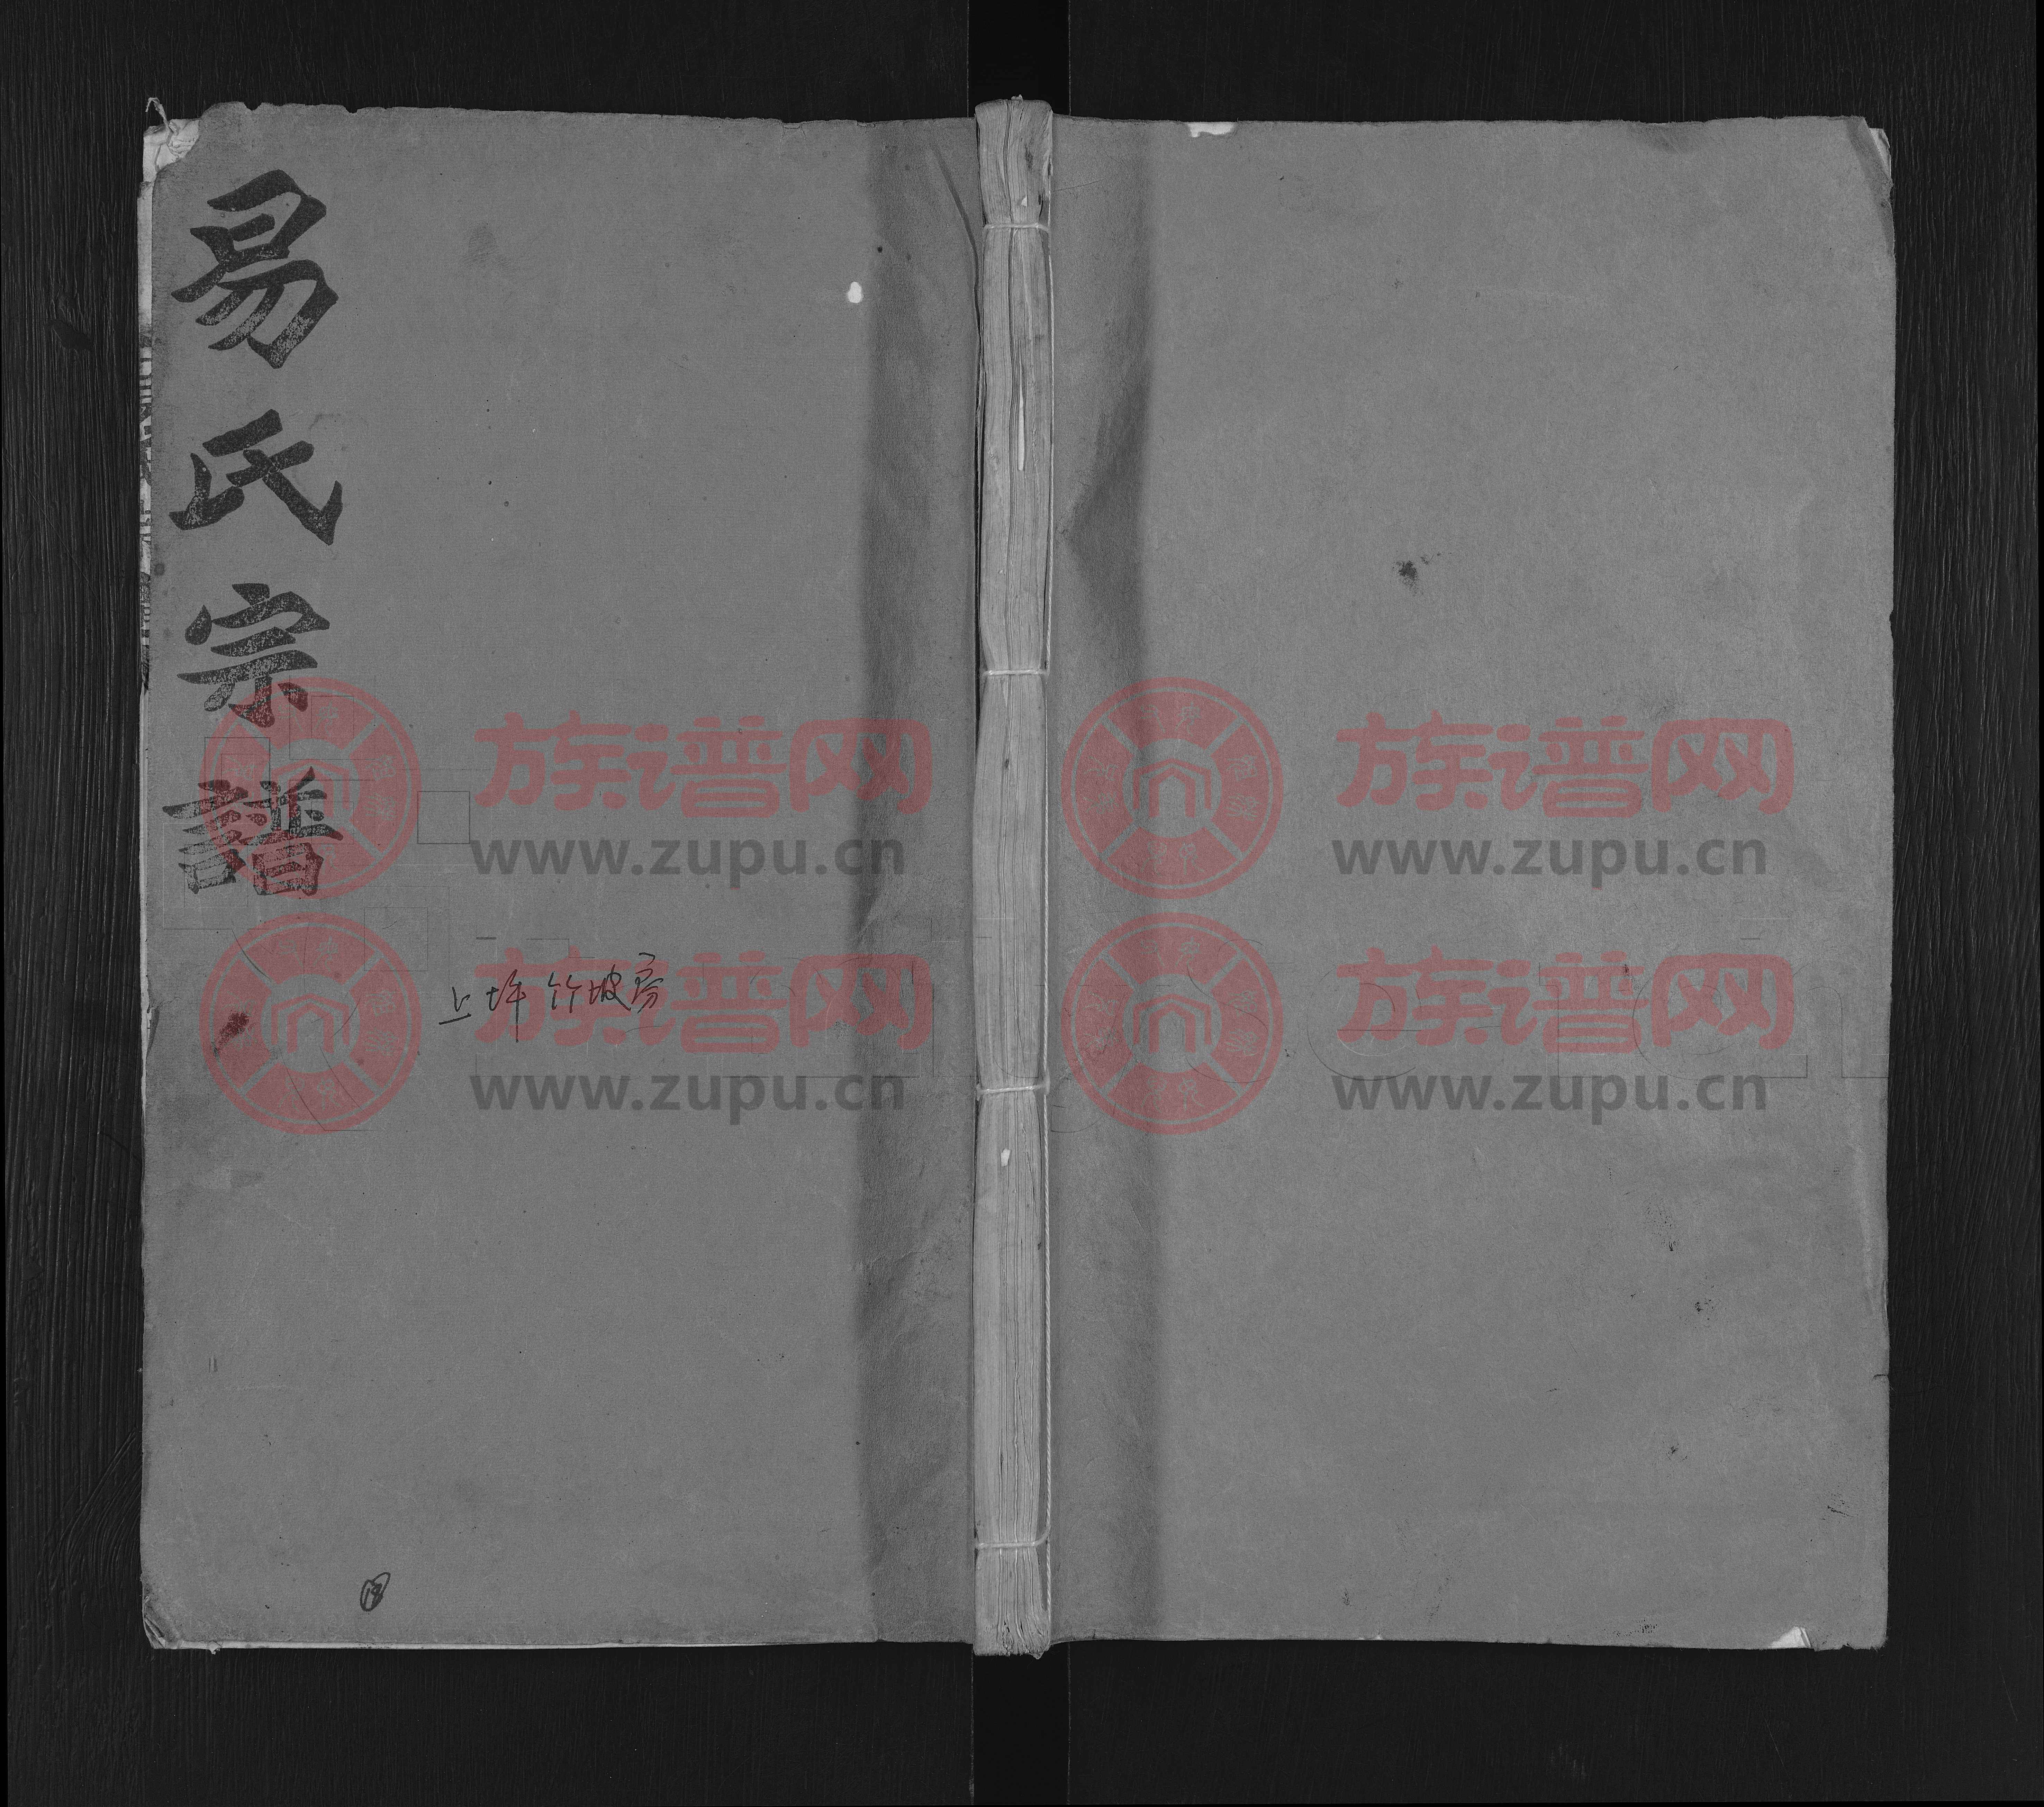 易氏宗譜
上坪竹坡房
族谱网 族谱网
www.zupu.cn www.zupu.cn
族谱网 族谱网
www.zupu.cn www.zupu.cn